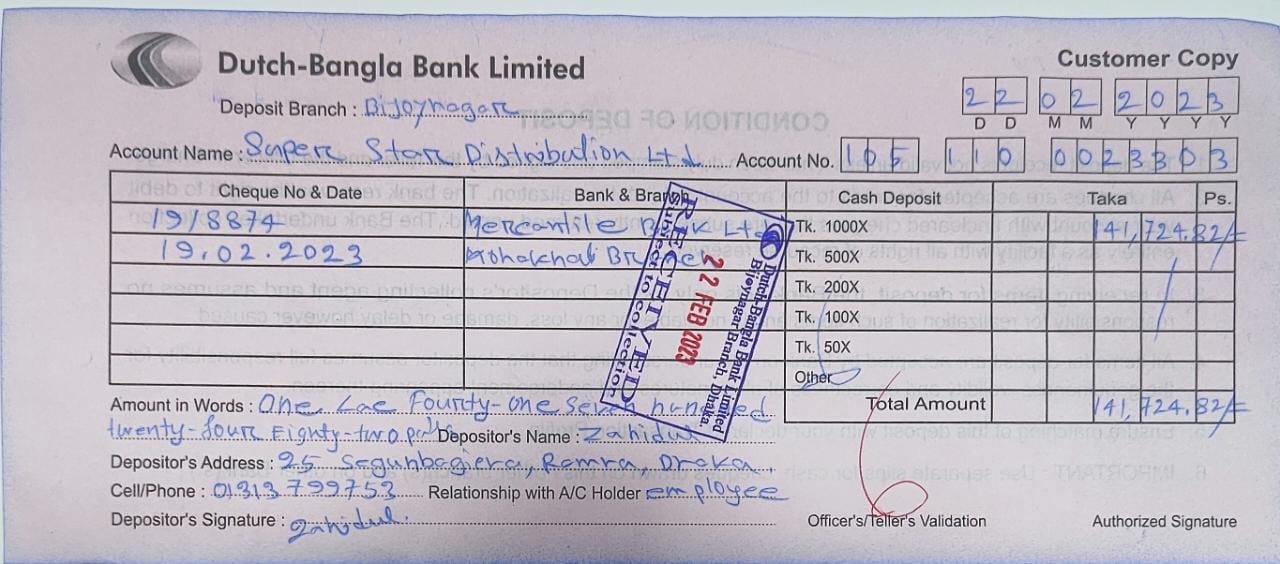 Dutch-Bangla Bank Limited
Customer Copy
Deposit Branch : Bijoynagar
22 02 2023
D D M M Y Y Y Y
Account Name : Super Star Distribution Ltd. Account No. 105 110 0023303
Cheque No & Date Bank & Branch Cash Deposit Taka Ps.
1918874 Mercantile Bank Ltd Tk. 1000X 141,724.82/=
19.02.2023 Mohakhali Branch Tk. 500X
Tk. 200X
Tk. 100X
Tk. 50X
Other
Dutch-Bangla Bank Limited
Bijoynagar Branch, Dhaka.
22 FEB 2023
RECEIVED
Subject to collection
Amount in Words : One Lac Fourty-one seven hundred Total Amount 141,724.82/=
twenty-four Eighty-two Depositor's Name : Zahidul
Depositor's Address : 25 Segunbagcha, Ramna, Dhaka.
Cell/Phone : 01313799753 Relationship with A/C Holder employee
Depositor's Signature : Zahidul. Officer's/Teller's Validation Authorized Signature